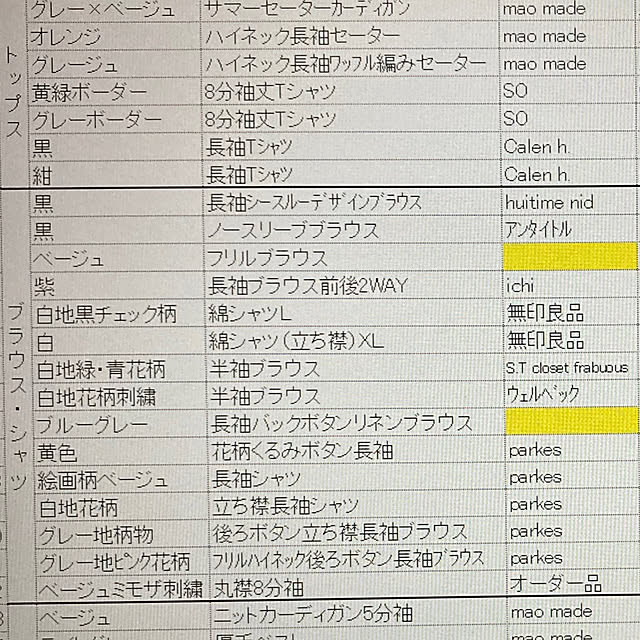 グレー×ベージュ サマーセーターカーディガン mao made
オレンジ ハイネック長袖セーター mao made
グレージュ ハイネック長袖ﾜｯﾌﾙ編みセーター mao made
黄緑ボーダー 8分袖丈Tシャツ SO
グレーボーダー 8分袖丈Tシャツ SO
黒 長袖Tｼｬﾂ Calen h.
紺 長袖Tｼｬﾂ Calen h.
トップス
黒 長袖ｼｰｽﾙｰﾃﾞｻﾞｲﾝﾌﾞﾗｳｽ huitime nid
黒 ノースリーブブラウス ｱﾝﾀｲﾄﾙ
ベージュ フリルブラウス
紫 長袖ブラウス前後2WAY ichi
白地黒チェック柄 綿シャツL 無印良品
白 綿シャツ(立ち襟)XL 無印良品
白地緑・青花柄 半袖ブラウス S.T closet frabuous
白地花柄刺繍 半袖ブラウス ｳｪﾙﾍﾞｯｸ
ブルーグレー 長袖バックボタンリネンブラウス
黄色 花柄くるみボタン長袖 parkes
絵画柄ベージュ 長袖シャツ parkes
白地花柄 立ち襟長袖シャツ parkes
グレー地柄物 後ろボタン立ち襟長袖ブラウス parkes
グレー地ﾋﾟﾝｸ花柄 ﾌﾘﾙハイネック後ろボタン長袖ﾌﾞﾗｳｽ parkes
ベージュミモザ刺繍 丸襟8分袖 オーダー品
ブラウス・シャツ
ベージュ ニットカーディガン5分袖 mao made
mao made